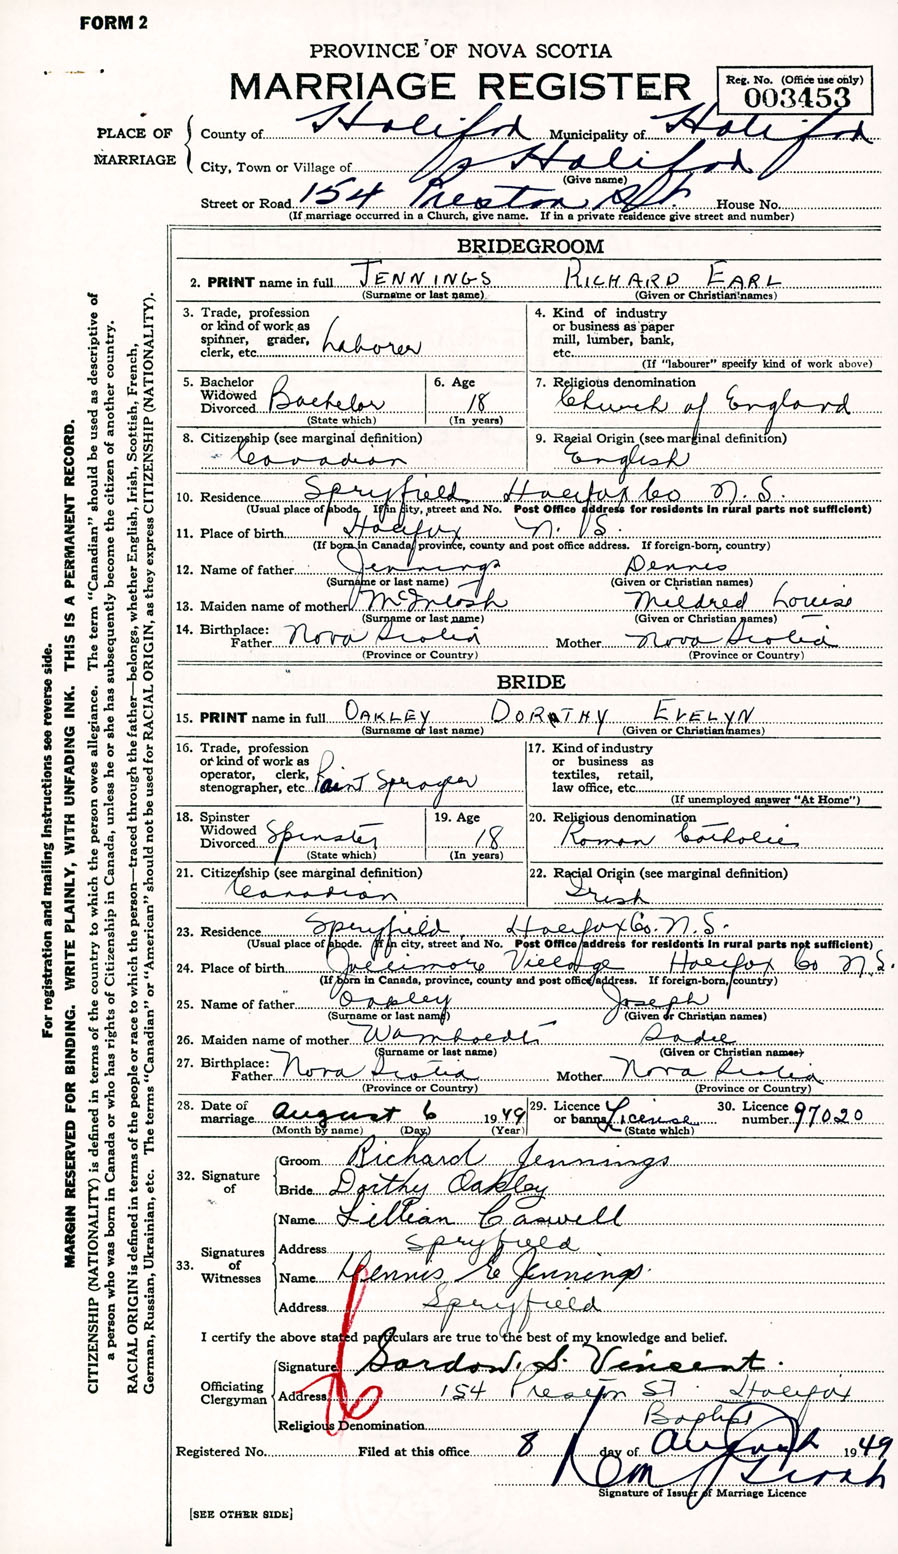 FORM 2
PROVINCE OF NOVA SCOTIA
MARRIAGE REGISTER
Reg. No. (Office use only)
003453
PLACE OF MARRIAGE
County of Halifax Municipality of Halifax
City, Town or Village of Halifax
(Give name)
Street or Road 154 Preston St. House No.
(If marriage occurred in a Church, give name. If in a private residence give street and number)
BRIDEGROOM
2. PRINT name in full JENNINGS RICHARD EARL
(Surname or last name) (Given or Christian names)
3. Trade, profession or kind of work as spinner, grader, clerk, etc. Laborer
4. Kind of industry or business as paper mill, lumber, bank, etc.
(If "labourer" specify kind of work above)
5. Bachelor Widowed Divorced Bachelor
(State which)
6. Age 18
(In years)
7. Religious denomination
Church of England
8. Citizenship (see marginal definition)
Canadian
9. Racial Origin (see marginal definition)
English
10. Residence Spryfield Halifax Co N.S.
(Usual place of abode. If in city, street and No. Post Office address for residents in rural parts not sufficient)
11. Place of birth Halifax N.S.
(If born in Canada, province, county and post office address. If foreign-born, country)
12. Name of father Jennings Dennis
(Surname or last name) (Given or Christian names)
13. Maiden name of mother McIntosh Mildred Louise
(Surname or last name) (Given or Christian names)
14. Birthplace: Father Nova Scotia Mother Nova Scotia
(Province or Country) (Province or Country)
BRIDE
15. PRINT name in full OAKLEY DOROTHY EVELYN
(Surname or last name) (Given or Christian names)
16. Trade, profession or kind of work as operator, clerk, stenographer, etc. Paint Sprayer
17. Kind of industry or business as textiles, retail, law office, etc.
(If unemployed answer "At Home")
18. Spinster Widowed Divorced Spinster
(State which)
19. Age 18
(In years)
20. Religious denomination
Roman Catholic
21. Citizenship (see marginal definition)
Canadian
22. Racial Origin (see marginal definition)
Irish
23. Residence Spryfield Halifax Co. N.S.
(Usual place of abode. If in city, street and No. Post Office address for residents in rural parts not sufficient)
24. Place of birth Jollimore Village Halifax Co N.S.
(If born in Canada, province, county and post office address. If foreign-born, country)
25. Name of father Oakley Joseph
(Surname or last name) (Given or Christian names)
26. Maiden name of mother Sadie
(Surname or last name) (Given or Christian names)
27. Birthplace: Father Nova Scotia Mother Nova Scotia
(Province or Country) (Province or Country)
28. Date of marriage August 6 1949
(Month by name) (Day) (Year)
29. Licence or banns License
(State which)
30. Licence number 97020
32. Signature of
Groom Richard Jennings
Bride Dorthy Oakley
33. Signatures of Witnesses
Name Lillian Caswell
Address Spryfield
Name Dennis E Jennings
Address Spryfield
I certify the above stated particulars are true to the best of my knowledge and belief.
Officiating Clergyman
Signature Gordon S. Vincent
Address 154 Preston St. Halifax
Religious Denomination Baptist
Registered No. Filed at this office 8 day of August 1949
Signature of Issuer of Marriage Licence
[SEE OTHER SIDE]
For registration and mailing instructions see reverse side.
MARGIN RESERVED FOR BINDING. WRITE PLAINLY, WITH UNFADING INK. THIS IS A PERMANENT RECORD.
CITIZENSHIP (NATIONALITY) is defined in terms of the country to which the person owes allegiance. The term "Canadian" should be used as descriptive of
a person who was born in Canada or who has rights of Citizenship in Canada, unless he or she has subsequently become the citizen of another country.
RACIAL ORIGIN is defined in terms of the people or race to which the person—traced through the father—belongs, whether English, Irish, Scottish, French,
German, Russian, Ukrainian, etc. The terms "Canadian" or "American" should not be used for RACIAL ORIGIN, as they express CITIZENSHIP (NATIONALITY).